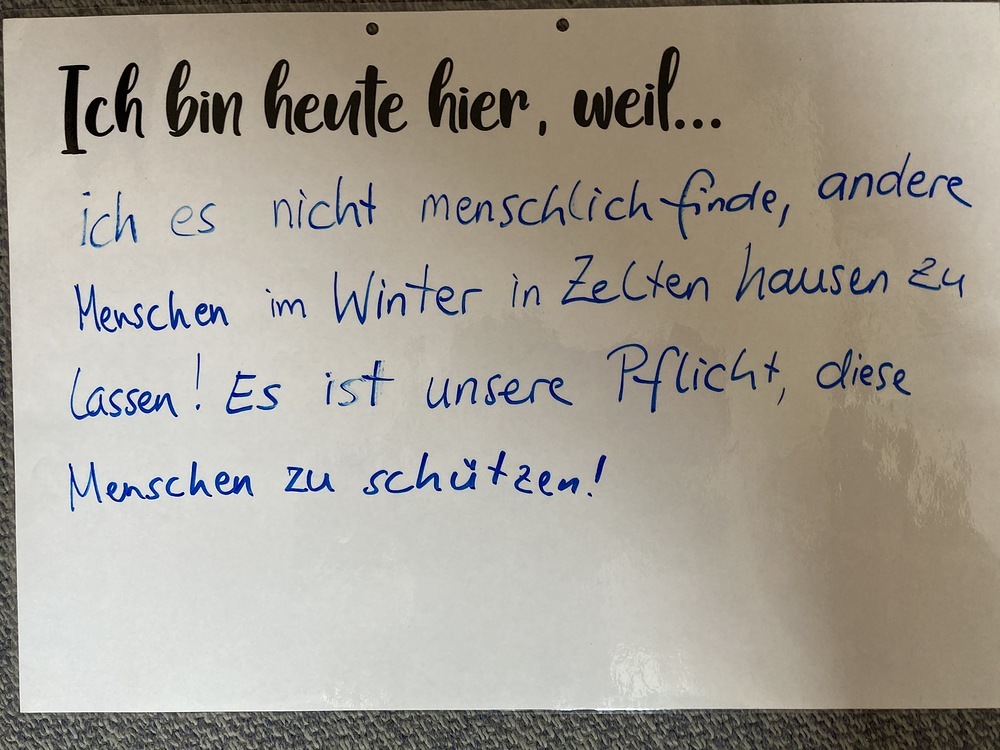 Ich bin heute hier, weil...
ich es nicht menschlich finde, andere
Menschen im Winter in Zelten hausen zu
lassen! Es ist unsere Pflicht, diese
Menschen zu schützen!